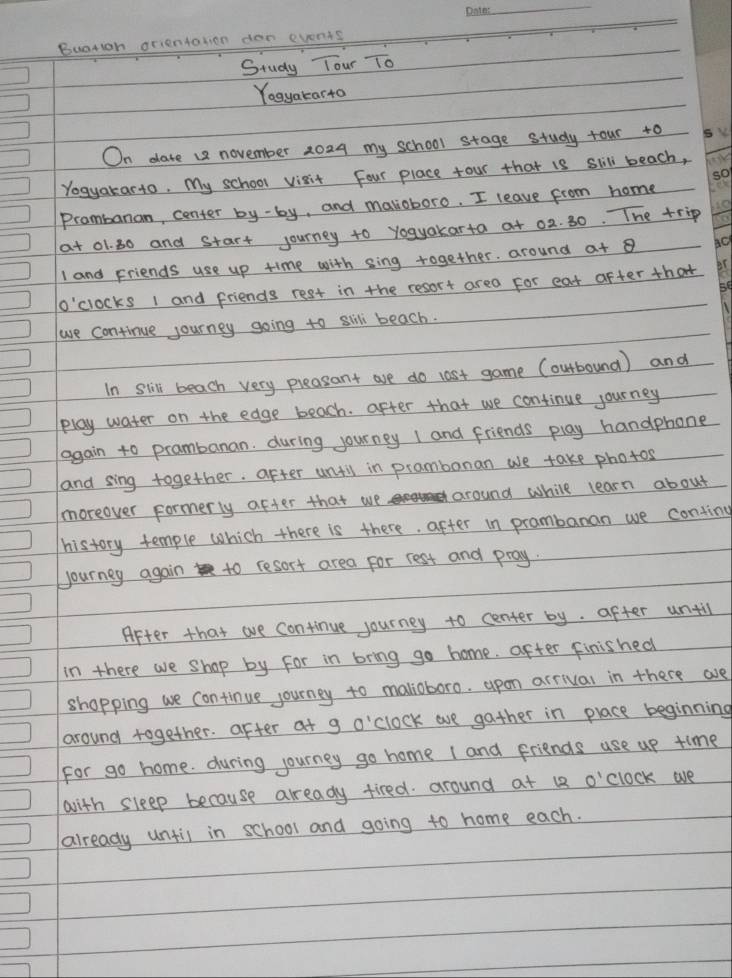 Date:
Buatlah orientation dan events
Study Tour To
Yogyakarta
On date 12 november 2024 my school stage study tour to
Yogyakarta. My school visit four place tour that is Slili beach,
Prambanan, center by-by, and malioboro. I leave from home
at 01.30 and start journey to Yogyakarta at 02.30. The trip
I and Friends use up time with sing together. around at 8
o'clocks I and friends rest in the resort area for eat after that
we continue journey going to slili beach.
In slili beach very pleasant we do lost game (outbound) and
play water on the edge beach. after that we continue journey
again to prambanan. during journey I and friends play handphone
and sing together. after until in prambanan we take photos
moreover formerly after that we around while learn about
history temple which there is there. after in prambanan we continu
journey again to resort area for rest and pray.
After that we continue journey to center by. after until
in there we shop by for in bring go home. after finished
shopping we continue journey to malioboro. upon arrival in there we
around together. after at 9 o'clock we gather in place beginning
for go home. during journey go home I and friends use up time
with sleep because already tired. around at 12 o'clock we
already until in school and going to home each.